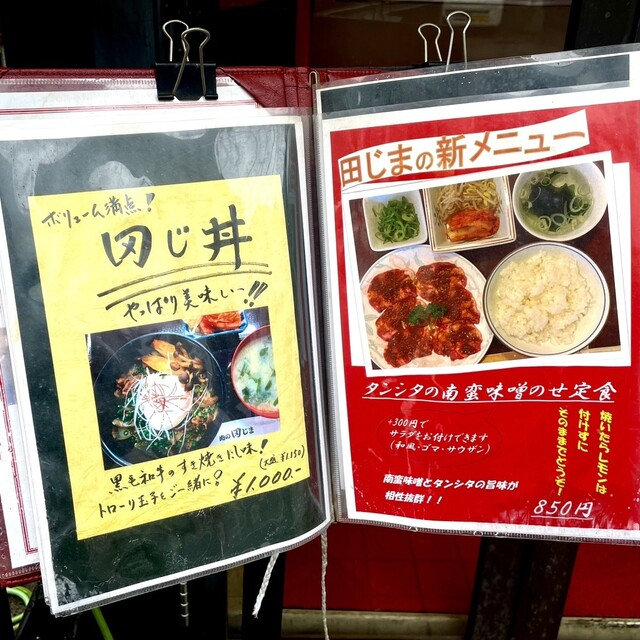 ボリューム満点!
田じ丼
やっぱり美味しい〜!!
肉の田じま
黒毛和牛のすき焼き風味!
トローリ玉子をご一緒に♪
(大盛¥1150)
¥1,000.-
田じまの新メニュー
タンシタの南蛮味噌のせ定食
+300円で
サラダをお付けできます
(和風・ゴマ・サウザン)
焼いたらレモンは
付けずに
そのままでどうぞ!
南蛮味噌とタンシタの旨味が
相性抜群!!
850円